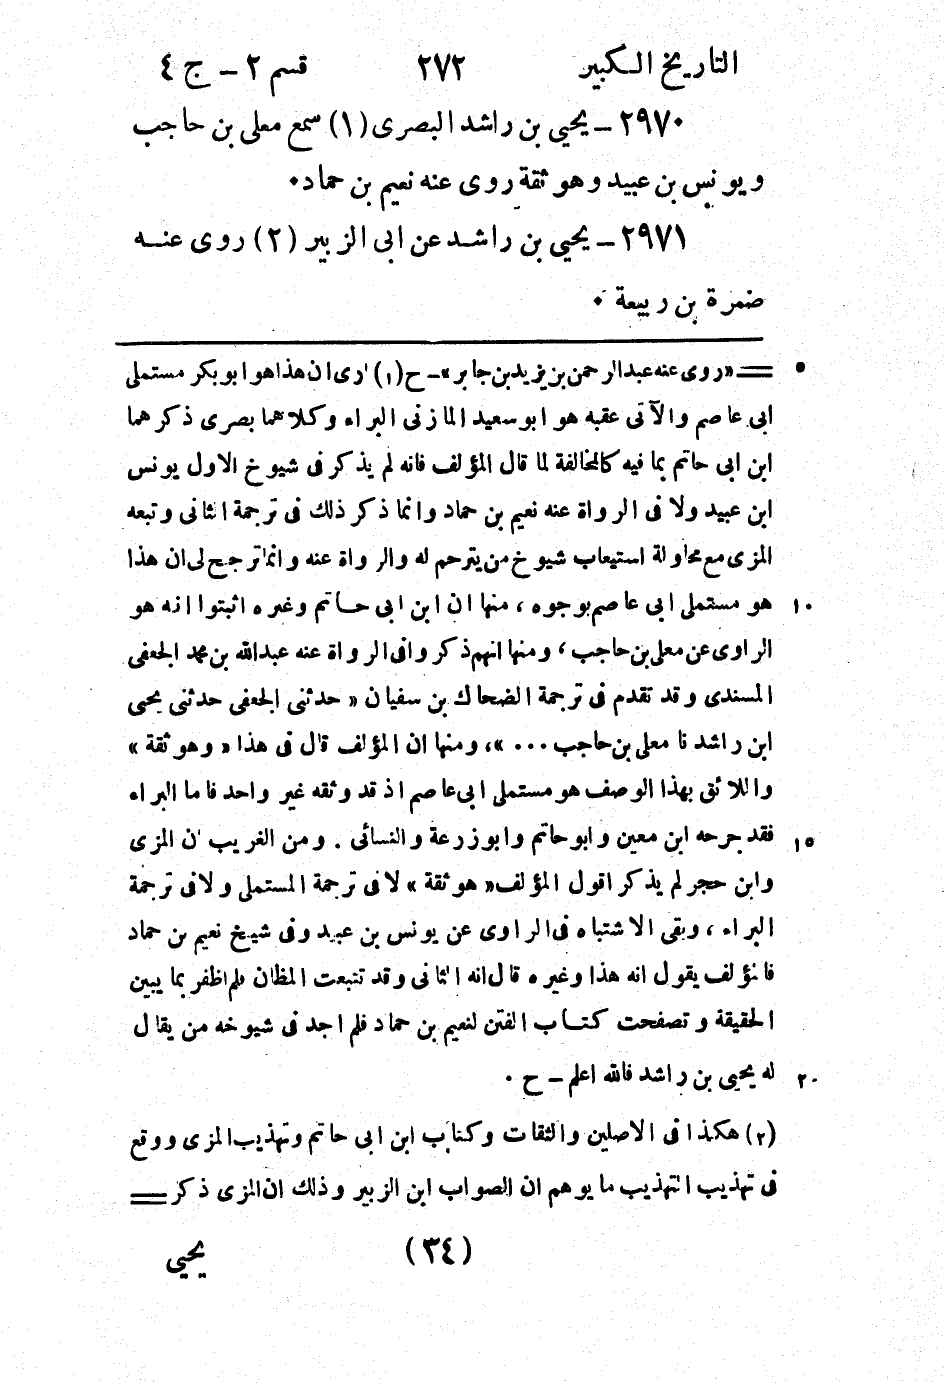 التاريخ الكبير ٢٧٢ قسم ٢ – ج ٤
٢٩٧٠ – يحيى بن راشد البصرى (١) سمع معلى بن حاجب
ويونس بن عبيد وهو ثقة روى عنه نعيم بن حماد٠
٢٩٧١ – يحيى بن راشد عن ابى الزبير (٢) روى عنه
ضمرة بن ربيعة ٠
٥ == «روى عنه عبدالرحمن بن يزيد بن جابر» – ح (١) ارى ان هذا هو ابو بكر مستملى
ابى عاصم والآتى عقبه هو ابو سعيد المازنى البراء وكلاهما بصرى ذكرهما
ابن ابى حاتم بما فيه كالمخالفة لما قال المؤلف فانه لم يذكر فى شيوخ الاول يونس
ابن عبيد ولا فى الرواة عنه نعيم بن حماد وانما ذكر ذلك فى ترجمة الثانى وتبعه
المزى مع محاولة استيعاب شيوخ من يترجم له والرواة عنه وانما ترجح لى ان هذا
١٠ هو مستملى ابى عاصم بوجوه ، منها ان ابن ابى حاتم وغيره اثبتوا انه هو
الراوى عن معلى بن حاجب ، ومنها انهم ذكروا فى الرواة عنه عبدالله بن محمد الجعفى
المسندى وقد تقدم فى ترجمة الضحاك بن سفيان « حدثنى الجعفى حدثنى يحيى
ابن راشد نا معلى بن حاجب ... »، ومنها ان المؤلف قال فى هذا « وهو ثقة »
واللائق بهذا الوصف هو مستملى ابى عاصم اذ قد وثقه غير واحد فاما البراء
١٥ فقد جرحه ابن معين وابو حاتم وابو زرعة والنسائى . ومن الغريب ان المزى
وابن حجر لم يذكرا قول المؤلف « هو ثقة » لا فى ترجمة المستملى ولا فى ترجمة
البراء ، وبقى الاشتباه فى الراوى عن يونس بن عبيد وفى شيخ نعيم بن حماد
فالمؤلف يقول انه هذا وغيره قال انه الثانى وقد تتبعت المظان فلم اظفر بما يبين
الحقيقة وتصفحت كتاب الفتن لنعيم بن حماد فلم اجد فى شيوخه من يقال
٢٠ له يحيى بن راشد فالله اعلم – ح .
(٢) هكذا فى الاصلين والثقات وكتاب ابن ابى حاتم وتهذيب المزى ووقع
فى تهذيب التهذيب ما يوهم ان الصواب ابن الزبير وذلك ان المزى ذكر ==
(٣٤) يحيى